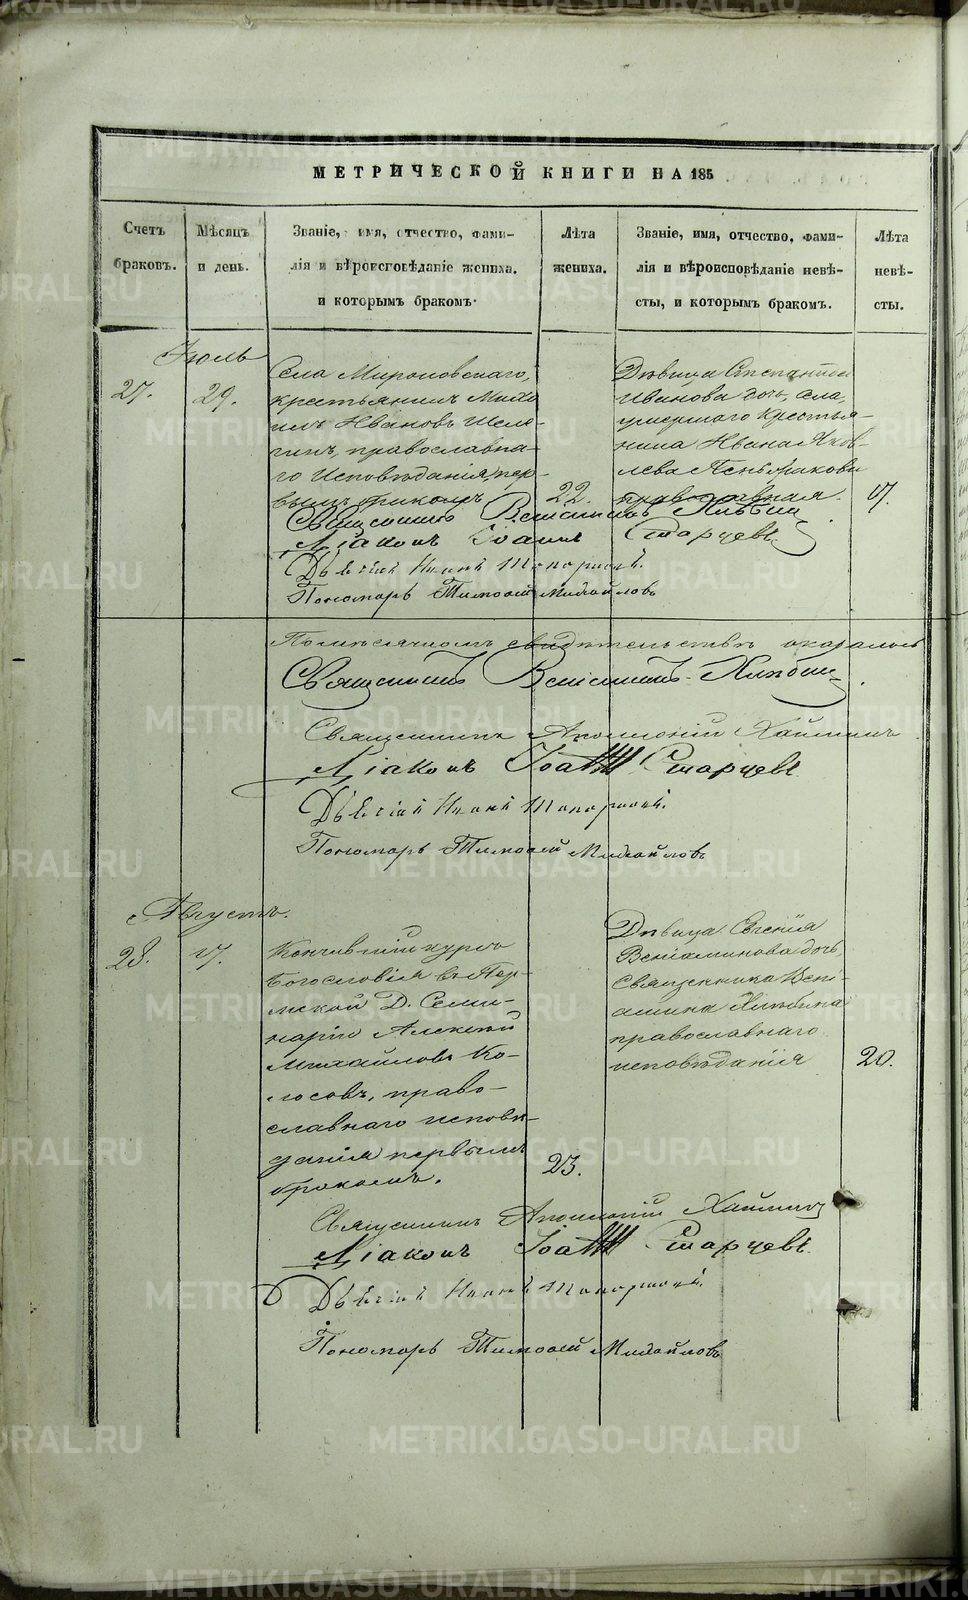 МЕТРИЧЕСКОЙ КНИГИ НА 185
Счетъ
браковъ.
Мѣсяцъ
и день.
Званіе, имя, отчество, фами-
лія и вѣроисповѣданіе жениха.
и которымъ бракомъ.
Лѣта
жениха.
Званіе, имя, отчество, фами-
лія и вѣроисповѣданіе невѣ-
сты, и которымъ бракомъ.
Лѣта
невѣ-
сты.
Іюль
27.
29.
Села Мироновскаго,
крестьянинъ Миха
илъ Ивановъ
православна-
го Исповѣданія, пер-
вымъ бракомъ
22.
Дѣвица Степанида
Иванова дочь, села,
умершаго крестья-
нина Ивана Яков-
лева
православная.
17.
Священникъ Веніаминъ
Діаконъ Іоаннъ Старцевъ
Дьячій Иванъ Топорковъ.
Пономарь Тимофей Михайловъ
По мѣсячномъ свидѣтельствѣ оказалось
Священникъ Веніаминъ
Священникъ Аполлоній Хайминъ
Діаконъ Іоаннъ Старцевъ
Дьячій Иванъ Топорковъ.
Пономарь Тимофей Михайловъ
Августъ.
28.
17.
Кончившій курсъ
Богословія въ Пер-
мской Д. Семи-
наріи Алексей
Михайловъ Ко-
лосовъ, право-
славнаго исповѣ-
данія первымъ
бракомъ.
23.
Дѣвица Евгенія
Веніаминова дочь,
Священника Вені-
амина
православнаго
исповѣданія
20.
Священникъ Аполлоній Хайминъ
Діаконъ Іоаннъ Старцевъ
Дьячій Иванъ Топорковъ.
Пономарь Тимофей Михайловъ
METRIKI.GASO-URAL.RU